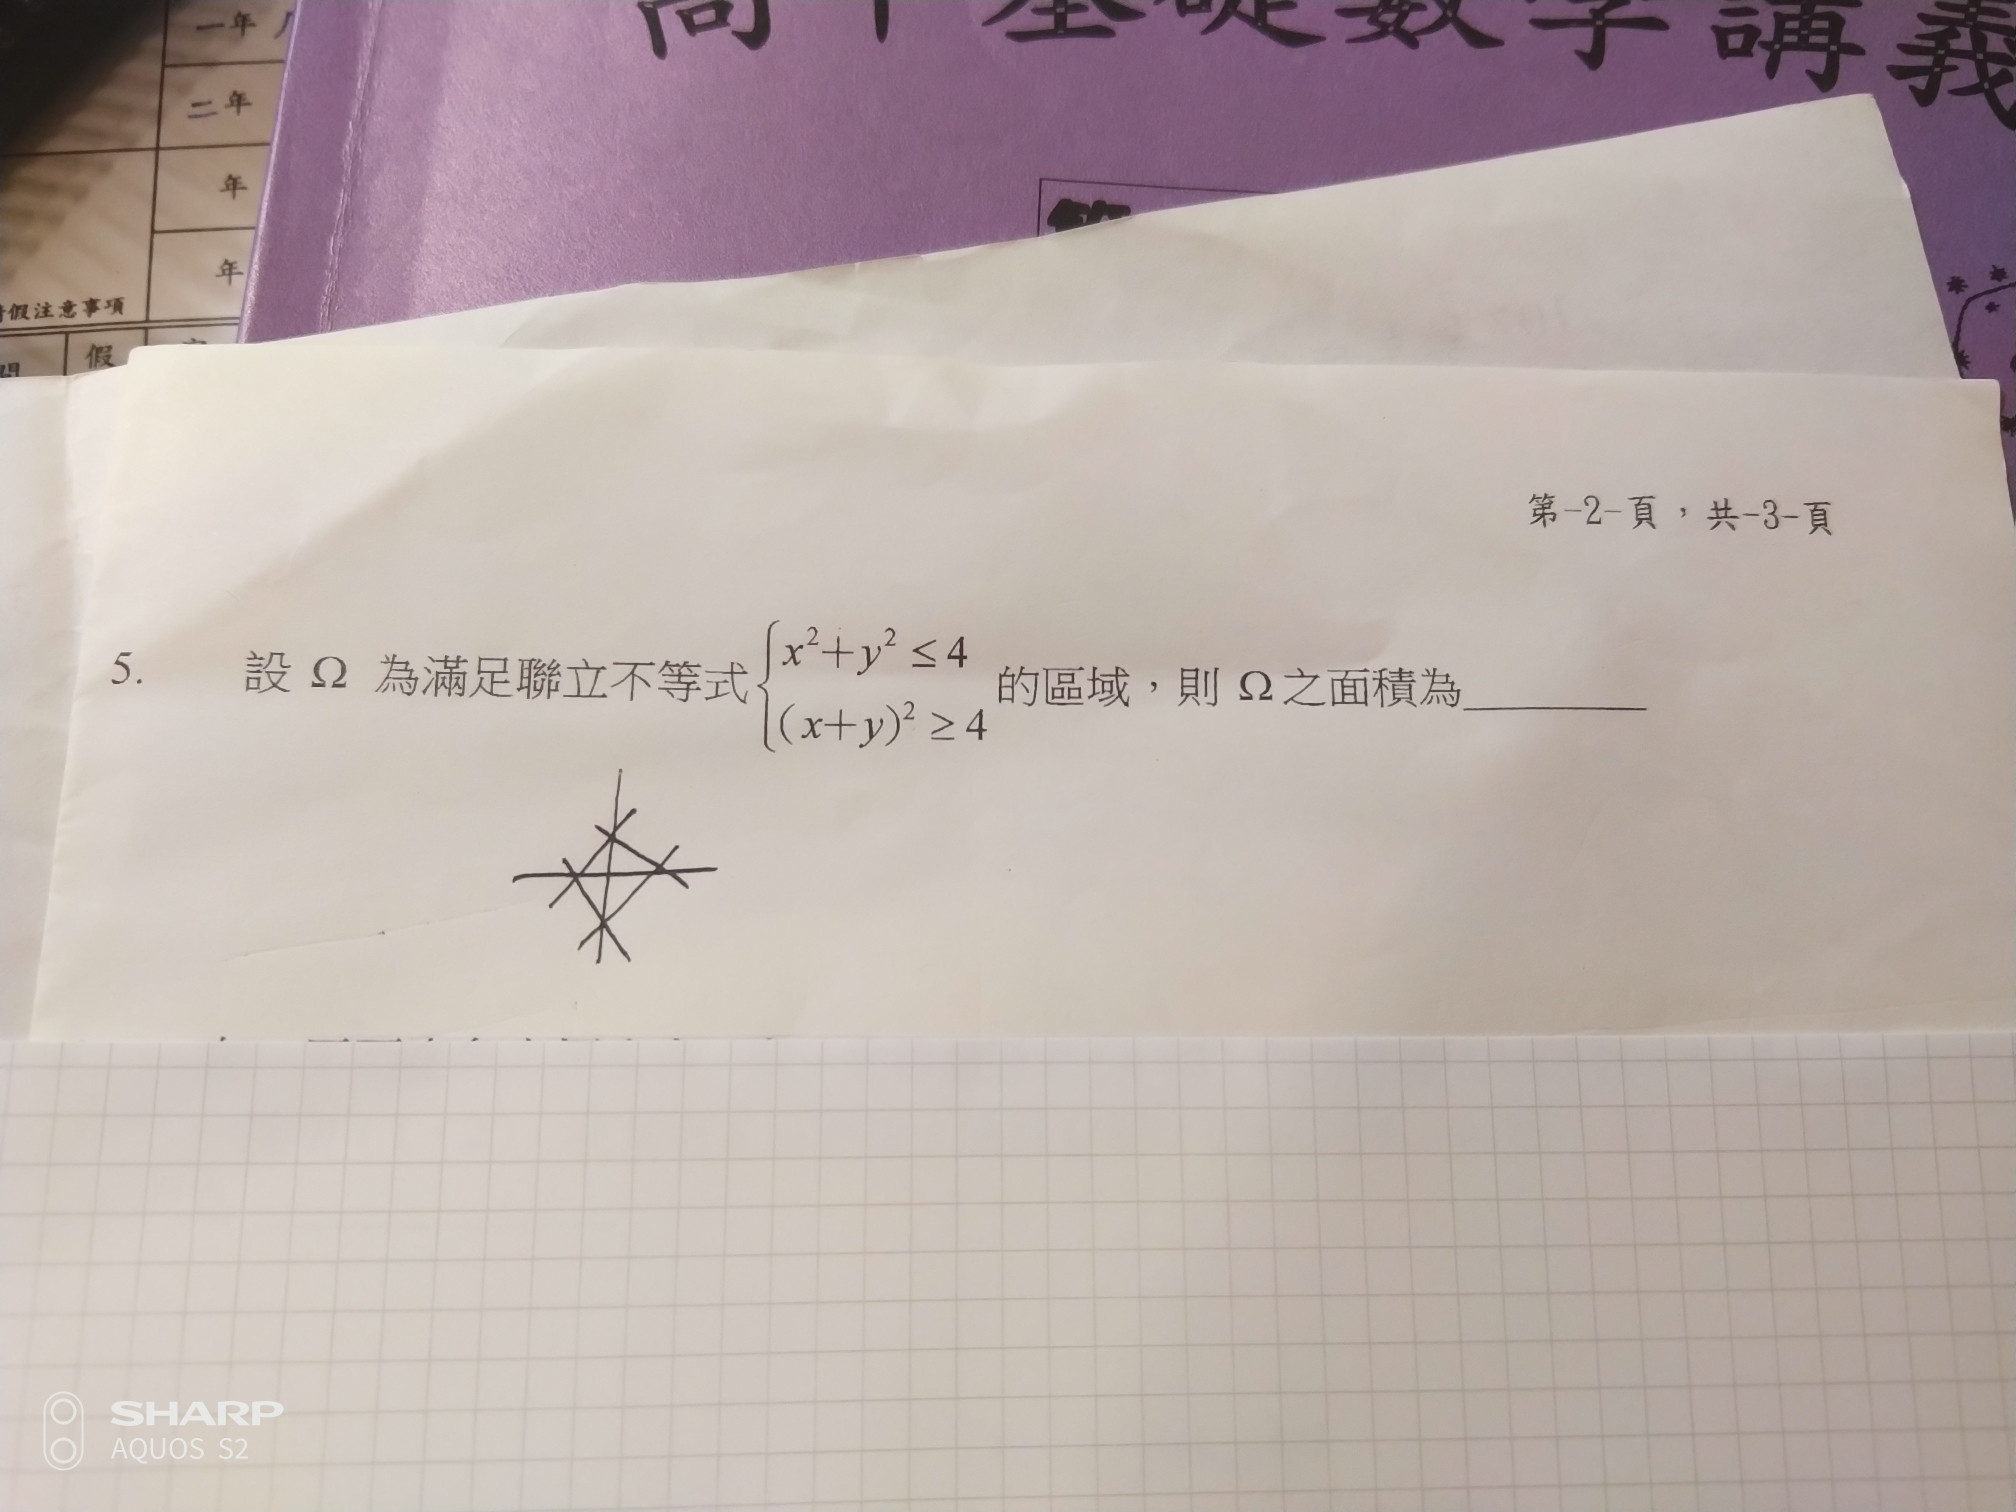 高中基礎數學講義
一年
二年
年
年
假注意事項
假
第-2-頁，共-3-頁
5. 設 Ω 為滿足聯立不等式{x²+y² ≤ 4
(x+y)² ≥ 4 的區域，則 Ω之面積為______
SHARP
AQUOS S2